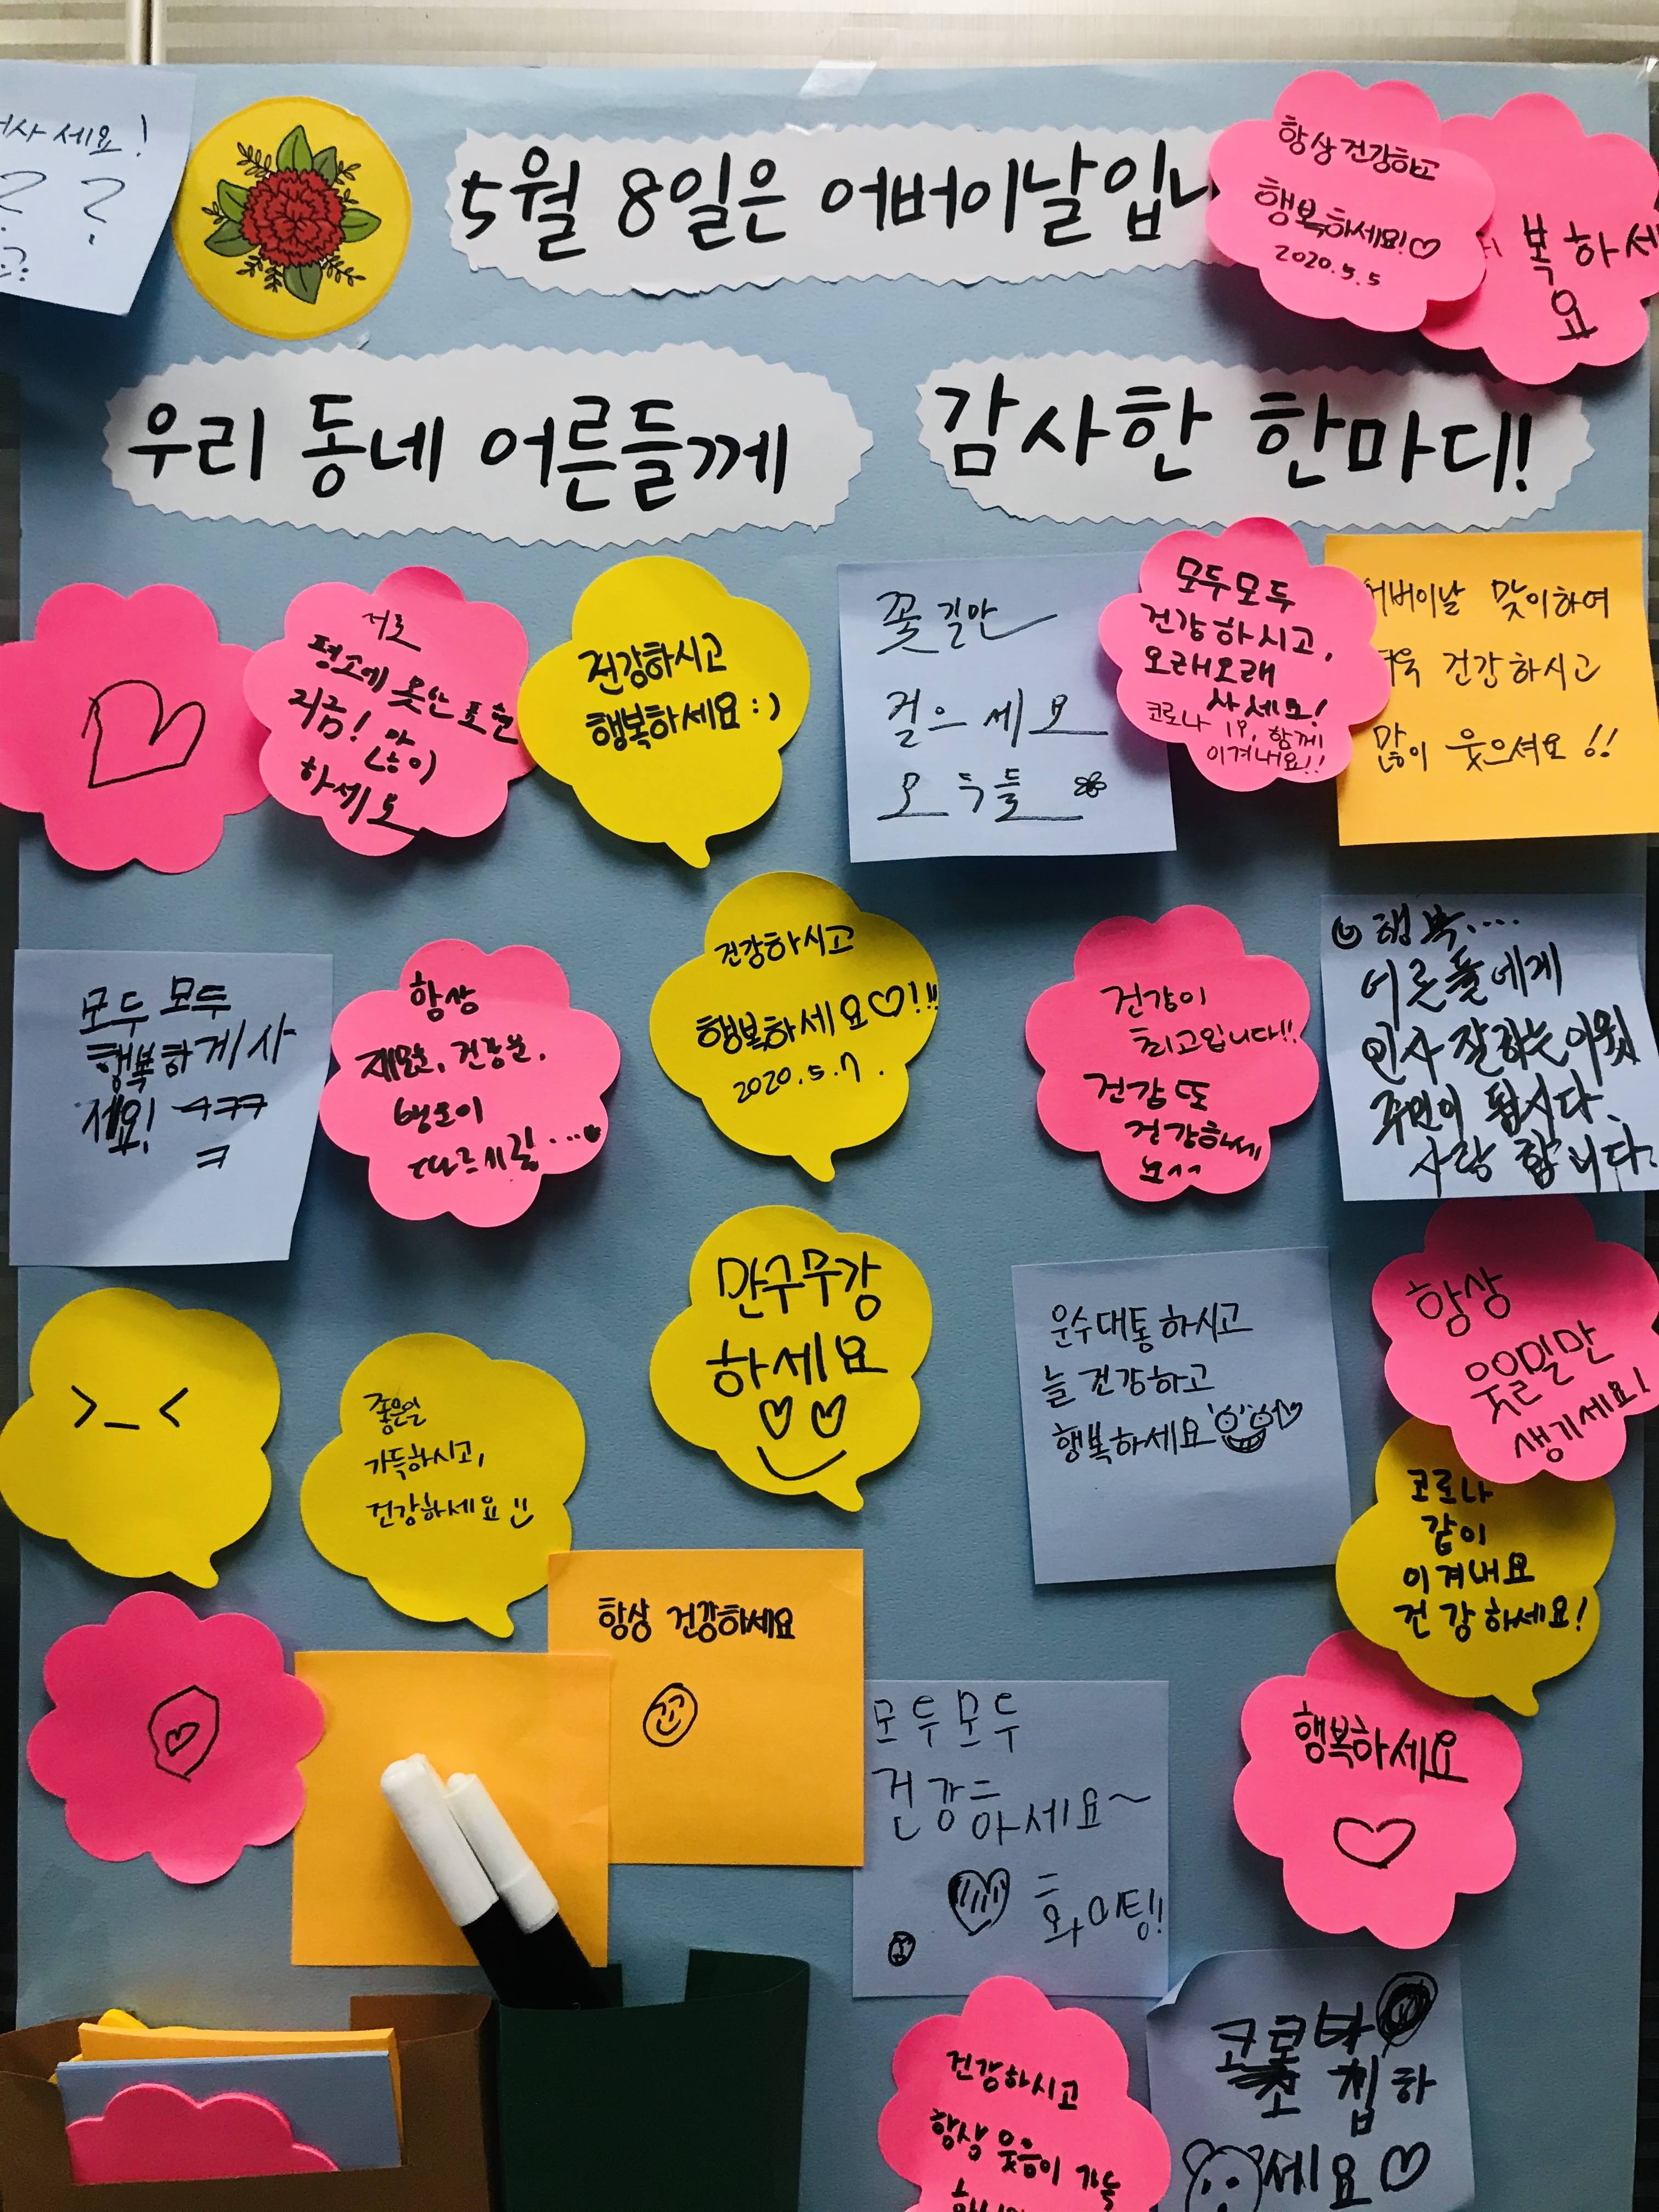 사세요!
? ?
5월 8일은 어버이날입니
항상 건강하고
행복하세요!♡
2020.5.5
복하세
요
우리 동네 어른들께
감사한 한마디!
서로
평소에 못한 표현
지금! 많이
하세요
건강하시고
행복하세요 :)
꽃길만
걸으세요
모두들
모두모두
건강하시고,
오래오래
사세요!
코로나 19, 함께
이겨내요!!
어버이날 맞이하여
더욱 건강하시고
많이 웃으셔요!!
모두 모두
행복하게 사
세요! ㅋㅋㅋ
ㅋ
항상
재물운, 건강운,
행운이
따르시길...
건강하시고
행복하세요♡!!!
2020.5.7.
건강이
최고입니다!!
건강 또
건강하세
요^^
행복....
어른들에게
인사 잘하는 이웃
주민이 됩시다.
사랑합니다.
>_<
좋은일
가득하시고,
건강하세요
만구무강
하세요
운수대통 하시고
늘 건강하고
행복하세요
항상
웃을일만
생기세요!
코로나
같이
이겨내요
건강하세요!
항상 건강하세요
모두모두
건강하세요~
화이팅!!
행복하세요
건강하시고
항상 웃음이 가득
코로나
조심하
세요♡